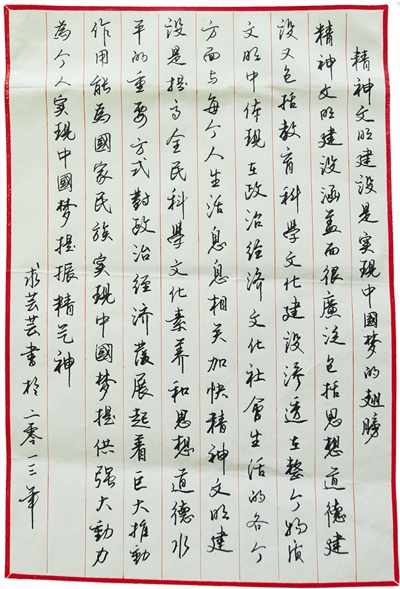 精神文明建设是实现中国梦的翅膀
精神文明建设涵盖面很廣泛包括思想道德建
设又包括教育科學文化建设渗透在整个物质
文明中体現在政治经济文化社會生活的各个
方面与每个人生活息息相关加快精神文明建
设是提高全民科學文化素养和思想道德水
平的重要方式對政治经济發展起着巨大推動
作用能為國家民族实現中國梦提供强大動力
為个人实現中國梦提振精气神
求芸芸書於二零一三年